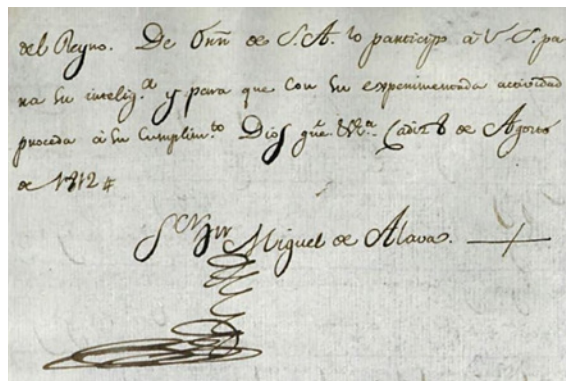 del Reyno. De Orñ de S.A. lo participo à V.S. pa
ra su intelig.ª y para que con su experimentada actividad
proceda à su cumplim.to Dios gũe. &ª. Cadiz 8 de Agosto
de 1812
Miguel de Alava.